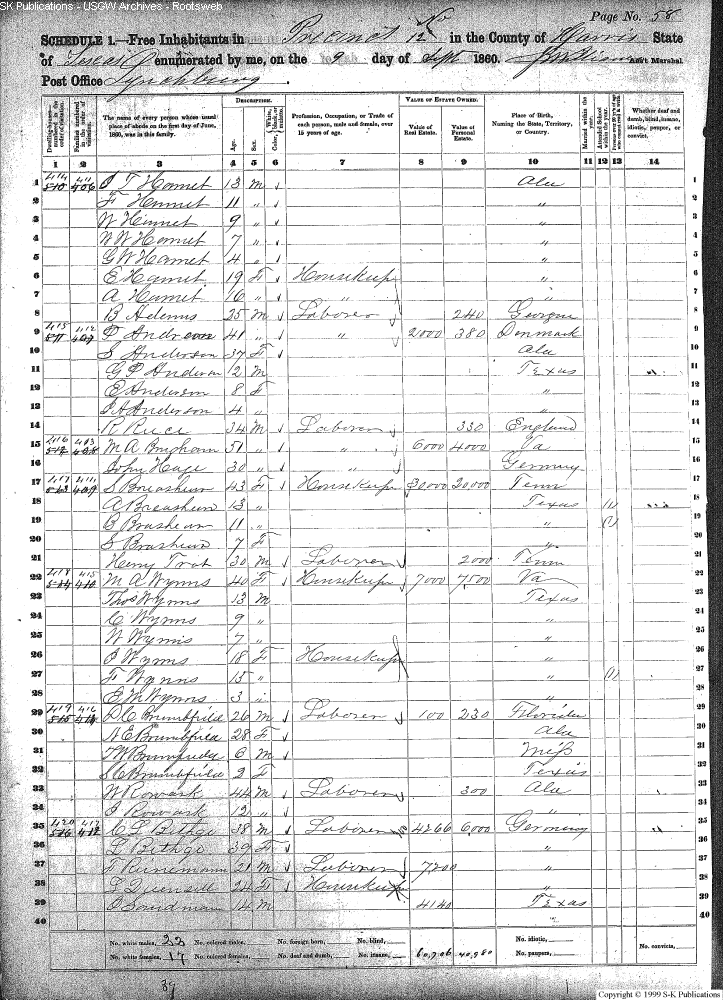 SK Publications - USGW Archives - Rootsweb
Page No. 58
SCHEDULE 1.—Free Inhabitants in Precinct No 12 in the County of Harris State
of Texas enumerated by me, on the 9 day of Sept 1860. Ass't Marshal
Post Office Lynchburg.
DESCRIPTION. VALUE OF ESTATE OWNED.
Dwelling-houses—numbered in the order of visitation. Families numbered in the order of visitation. The name of every person whose usual place of abode on the first day of June, 1860, was in this family. Age. Sex. Color, White, black, or mulatto. Profession, Occupation, or Trade of each person, male and female, over 15 years of age. Value of Real Estate. Value of Personal Estate. Place of Birth, Naming the State, Territory, or Country. Married within the year. Attended School within the year. Whether deaf and dumb, blind, insane, idiotic, pauper, or convict.
1 2 3 4 5 6 7 8 9 10 11 12 13 14
1 414 406 T Hamet 13 M Ala 1
2 F Hamet 11 " " 2
3 W Hamet 9 " " 3
4 W W Hamet 7 " " 4
5 G W Hamet 4 " " 5
6 E Hamet 19 F Housekeep " 6
7 A Hamet 16 " " " 7
8 B Adenus 25 M Laborer 240 Georgia 8
9 415 412 P Anderson 41 " " 2000 380 Denmark 9
10 S Anderson 37 F Ala 10
11 G P Anderson 12 M Texas 11
12 E Anderson 8 F " 12
13 A Anderson 4 " " 13
14 R Ruce 34 M Laborer 330 England 14
15 416 413 M A Bingham 51 " " 6000 4000 Va 15
16 John Hage 30 " " Germany 16
17 417 409 S Breashear 43 F Housekeep 30000 20,000 Tenn 17
18 A Breashear 13 " Texas (1) 18
19 B Brashear 11 " " (1) 19
20 S Brashear 7 F " 20
21 Henry Trot 30 M Laborer 2000 Tenn 21
22 418 415 M A Wynns 40 F Housekeep 7000 7500 Va 22
23 Thos Wynns 13 M Texas 23
24 C Wynns 9 " " 24
25 W Wynns 7 " " 25
26 Wynns 18 F Housekeep " 26
27 F Wynns 15 " " (1) 27
28 E M Wynns 3 " " 28
29 419 416 D C Brumbfield 26 M Laborer 100 230 Florida 29
30 N E Brumbfield 28 F Ala 30
31 Brumfield 6 M Miss 31
32 S C Brumbfield 2 F Texas 32
33 W Rowark 44 M Laborer 300 Ala 33
34 Rowark 12 " " 34
35 420 417 C L Bethge 38 M Laborer 4266 6,000 Germany 35
36 L Bethge 39 F " 36
37 F 21 M Laborer 7200 " 37
38 L 24 F Housekeep " 38
39 14 M 4140 Texas 39
40 " 40
No. white males, 22 No. colored males, No. foreign born, No. blind, No. idiotic, No. convicts,
No. white females, 17 No. colored females, No. deaf and dumb, No. insane, 60,706 40,980 No. paupers,
39
Copyright © 1999 S-K Publications